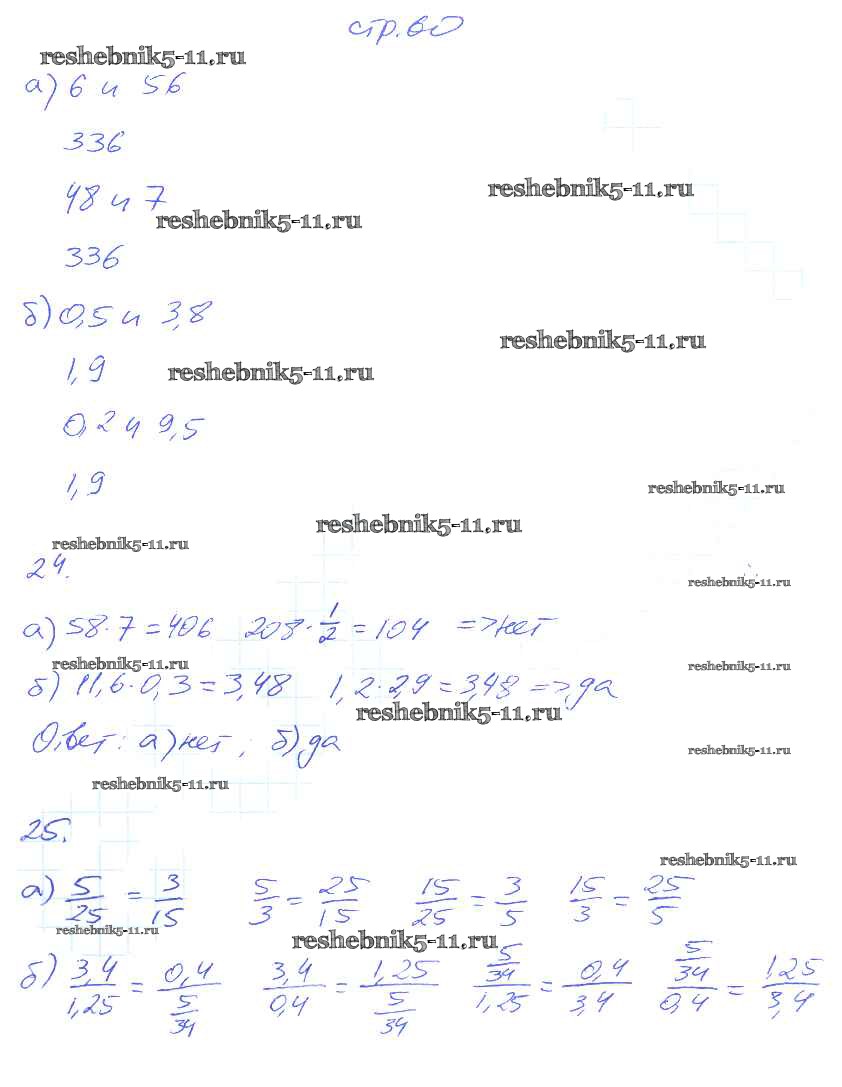 стр.60
reshebnik5-11.ru
а) 6 и 56
336
reshebnik5-11.ru
48 и 7
reshebnik5-11.ru
336
б) 0,5 и 3,8
reshebnik5-11.ru
1,9
reshebnik5-11.ru
0,2 и 9,5
1,9
reshebnik5-11.ru
reshebnik5-11.ru
reshebnik5-11.ru
24.
reshebnik5-11.ru
а) 58·7=406 208·1/2=104 =>нет
reshebnik5-11.ru
reshebnik5-11.ru
б) 11,6·0,3=3,48 1,2·2,9=3,48=>да
reshebnik5-11.ru
Ответ: а)нет; б)да
reshebnik5-11.ru
reshebnik5-11.ru
25.
reshebnik5-11.ru
а) 5/25 = 3/15 5/3 = 25/15 15/25 = 3/5 15/3 = 25/5
reshebnik5-11.ru
reshebnik5-11.ru
б) 3,4/1,25 = 0,4/(5/34) 3,4/0,4 = 1,25/(5/34) (5/34)/1,25 = 0,4/3,4 (5/34)/0,4 = 1,25/3,4